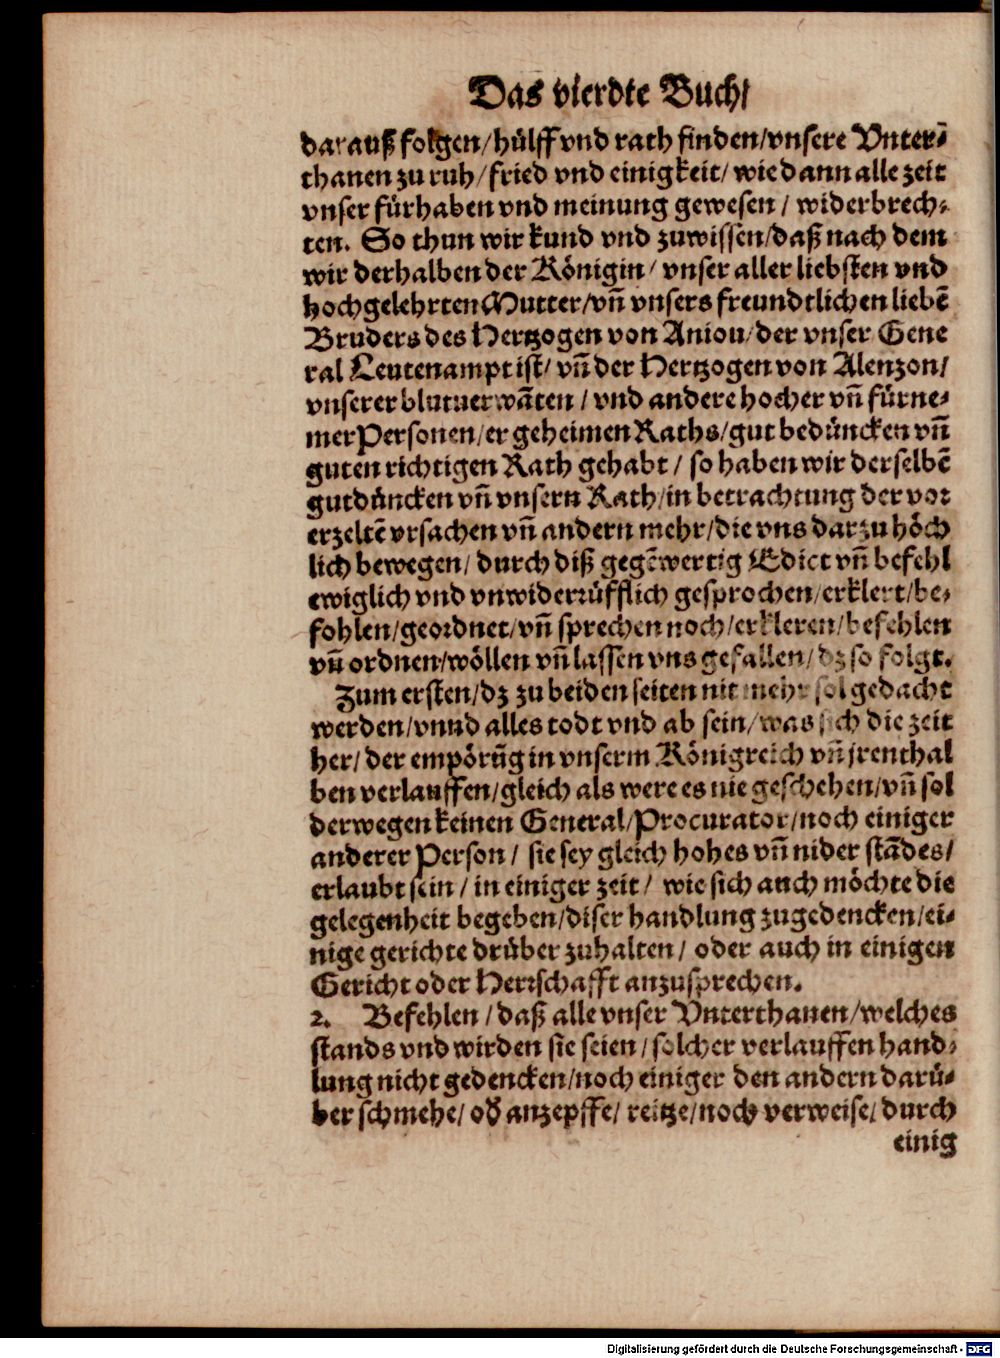 Das vierdte Buch/
darauß folgen/hülff vnd rath finden/vnsere Vnter-
thanen zu ruh/fried vnd einigkeit/wie dann alle zeit
vnser fürhaben vnd meinung gewesen/widerbrech-
ten. So thun wir kund vnd zuwissen/daß nach dem
wir derhalben der Königin/vnser aller liebsten vnd
hochgelehrten Mutter/vñ vnsers freundtlichen liebẽ
Bruders des Hertzogen von Aniou/der vnser Gene
ral Leutenampt ist/vñ der Hertzogen von Alenzon/
vnserer blutuerwãten/vnd andere hocher vñ fürne-
mer Personen/er geheimen Raths/gut bedüncken vñ
guten richtigen Rath gehabt/so haben wir derselbẽ
gutdüncken vñ vnsern Rath/in betrachtung der vor
erzeltẽ vrsachen vñ andern mehr/die vns darzu höch
lich bewegen/durch diß gegẽwertig Edict vñ befehl
ewiglich vnd vnwiderrüfflich gesprochen/erklert/be-
fohlen/geordnet/vñ sprechen noch/erkleren/befehlen
vñ ordnen/wöllen vñ lassen vns gefallen/dz so folgt.
Zum ersten/dz zu beiden seiten nit mehr sol gedacht
werden/vnnd alles todt vnd ab sein/was sich die zeit
her/der empörũg in vnserm Königreich vñ jrenthal
ben verlauffen/gleich als were es nie geschehen/vñ sol
derwegen keinen General/Procurator/noch einiger
anderer Person/sie sey gleich hohes vñ nider stãdes/
erlaubt sein/in einiger zeit/wie sich auch möchte die
gelegenheit begeben/diser handlung zugedencken/ei-
nige gerichte drüber zuhalten/oder auch in einigen
Gericht oder Herrschafft anzusprechen.
2. Befehlen/daß alle vnser Vnterthanen/welches
stands vnd wirden sie seien/solcher verlauffen hand-
lung nicht gedencken/noch einiger den andern darü-
ber schmehe/oď anzepffe/reitze/noch verweise/durch
einig
Digitalisierung gefördert durch die Deutsche Forschungsgemeinschaft - DFG